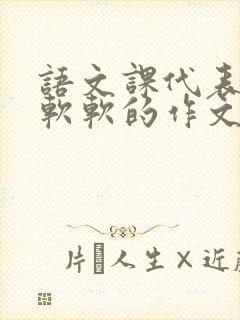 語文課代表
軟軟的作文
人生×近